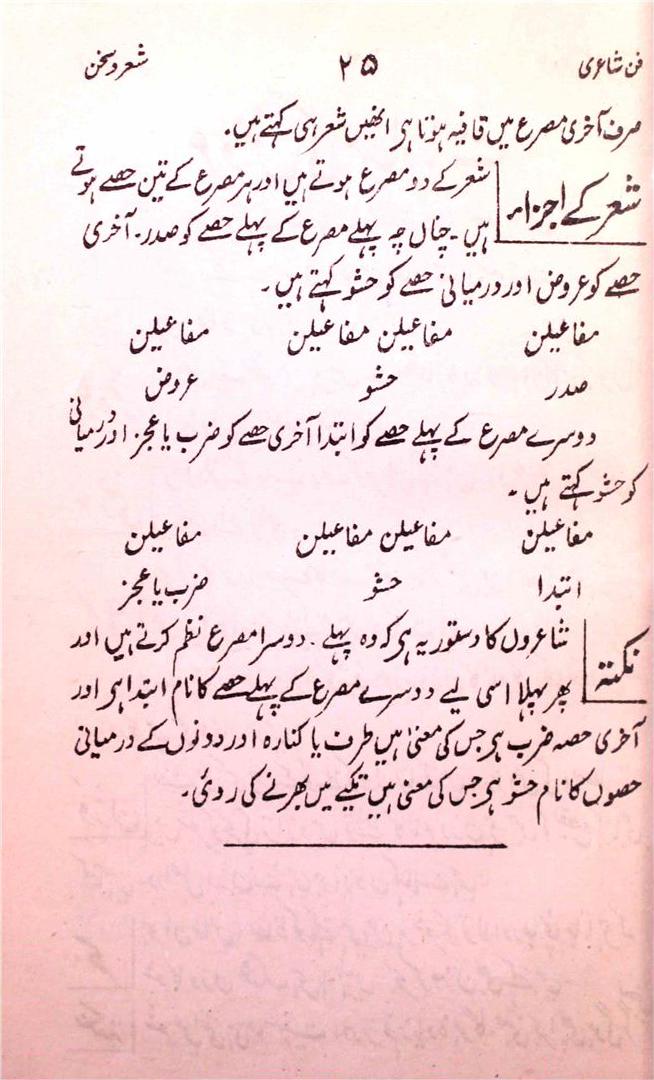 فن شاعری ۲۵ شعر و سخن
صرف آخری مصرع میں قافیہ ہوتا ہر انھیں شعر ہی کہتے ہیں.
شعر کے اجزاء
شعر کے دو مصرع ہوتے ہیں اور ہر مصرع کے تین حصے ہوتے
ہیں۔ چناں چہ پہلے مصرع کے پہلے حصے کو صدر۔ آخری
حصے کو عروض اور درمیانی حصے کو حشو کہتے ہیں۔
مفاعیلن مفاعیلن مفاعیلن مفاعیلن
صدر حشو عروض
دوسرے مصرع کے پہلے حصے کو ابتدا آخری حصے کو ضرب یا عجز اور درمیانی
کو حشو کہتے ہیں۔
مفاعیلن مفاعیلن مفاعیلن مفاعیلن
ابتدا حشو ضرب یا عجز
نکتہ
شاعروں کا دستور یہ ہر کہ وہ پہلے۔ دوسرا مصرع نظم کرتے ہیں اور
پھر پہلا اسی لیے دوسرے مصرع کے پہلے حصے کا نام ابتدا ہر اور
آخری حصہ ضرب ہر جس کی معنیٰ ہیں طرف یا کنارہ اور دونوں کے درمیانی
حصوں کا نام حشو ہر جس کی معنیٰ ہیں تکیے میں بھرنے کی روئی۔